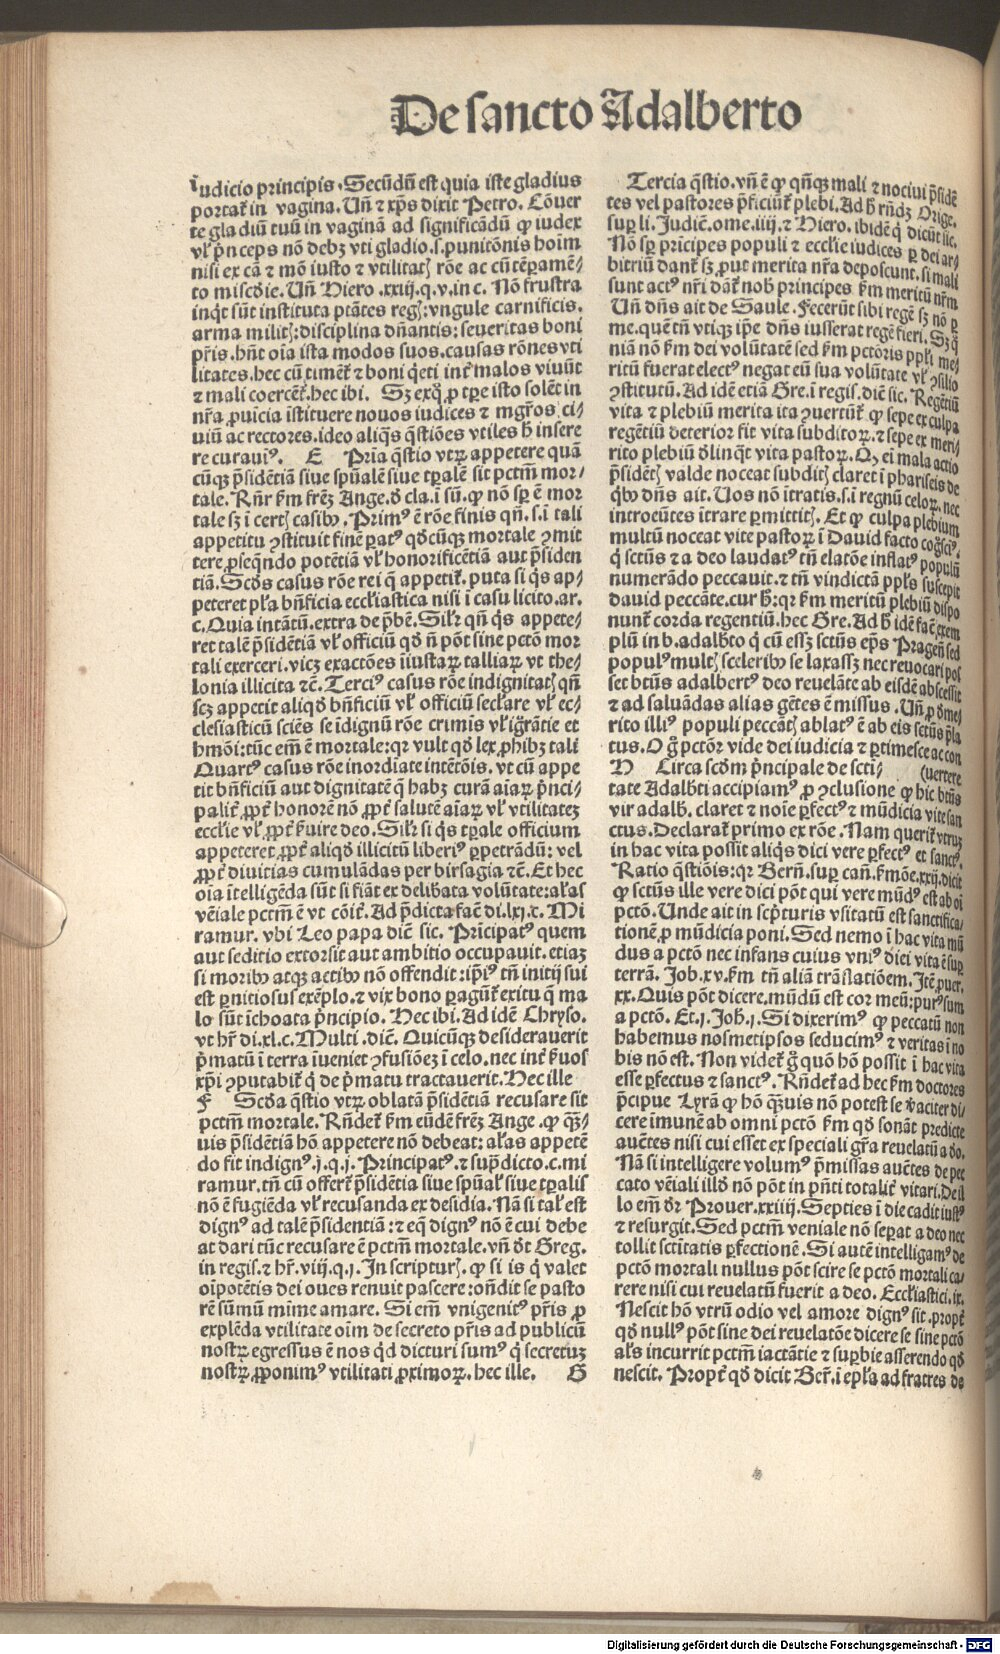 De sancto Adalberto
iudicio principis. Secūdū est quia iste gladius
portat̄ in vagina. Vn̄ ⁊ xp̄s dixit Petro. Cōuer
te gladiū tuū in vaginā ad significādū ꝙ iudex
vl̓ pn̄ceps nō debꝫ vti gladio .s. punitōnis hoim
nisi ex cā ⁊ mō iusto ⁊ vtilitatꝭ rōe ac cū tēꝑamē⸗
to miscd̓ie. Vn̄ Hiero .xxiij.q.v.in c. Nō frustra
inqt̄ sūt instituta ptātes regꝭ: vngule carnificis.
arma militꝭ: disciplina dn̄antis: seueritas boni
pr̄is. hn̄t oīa ista modos suos. causas rōnes vti
litates. hec cū timēt̄ ⁊ boni qeti int̄ malos viuūt
⁊ mali coercēt̄. hec ibi. Sꝫ exq̄ ꝓ tꝑe isto solēt in
nr̄a ꝓuīcia īstituere nouos iudices ⁊ mgr̄os ci⸗
uiū ac rectores. ideo aliqs q̄stiōes vtiles h̄ insere
re curauiꝰ. E Prīa q̄stio vtꝝ appetere quā
cūqꝫ p̄sidētiā siue spūalē siue tꝑalē sit pctm̄ mor⸗
tale. Rn̄r ẜm frēꝫ Ange. d̓ cla. ī sū. ꝙ nō sꝑ ē mor
tale sꝫ ī certꝭ casibꝰ. Primꝰ ē rōe finis qn̄ .s. ī tali
appetitu ꝯstituit finē ꝑatꝰ qd̓cūqꝫ mortale ꝯmit
tere ꝓseqn̄do potētiā vl̓ honorificētiā aut p̄siden
tiā. Scd̓s casus rōe rei q̄ appetit̄. puta si q̄s ap⸗
peteret pl̓a bn̄ficia eccl̓iastica nisi ī casu licito. ar.
c. Quia intātū. extra de p̄bē. Sil̓r qn̄ q̄s appete⸗
ret talē p̄sidētiā vl̓ officiū qd̓ n̄ pōt sine pctō mor
tali exerceri. vicꝫ exactōes īiustaꝝ talliaꝝ vt the⸗
lonia illicita ⁊c̄. Terciꝰ casus rōe indignitatꝭ qn̄
scꝫ appetit aliqd̓ bn̄ficiū vl̓ officiū secl̓are vl̓ ec⸗
clesiasticū sciēs se īdignū rōe crimīs vl̓ igr̄antie et
hmōi: tūc em̄ ē mortale: qr vult qd̓ lex ꝓhibꝫ talī
Quartꝰ casus rōe inordīate intētōis. vt cū appe
tit bn̄ficiū aut dignitatē q̄ habꝫ curā aīaꝝ p̄nci⸗
palit̄ ꝓpt̄ honorē nō ꝓpt̄ salutē aīaꝝ vl̓ vtilitateꝫ
eccl̓ie vl̓ ꝓpt̄ ẜuire deo. Sil̓r si q̄s tꝑale officium
appeteret ꝓpt̄ aliqd̓ illicitū liberiꝰ ꝑpetrādū: vel
ꝓpt̄ diuitias cumulādas per birsagia ⁊c̄. Et hec
oīa ītelligēda sūt si fiāt ex delibata volūtate: al̓as
vēiale pctm̄ ē vt cōit̄. Ad p̄dicta fac̄ di. lxj. c. Mi
ramur. vbi Leo papa dic̄ sic. Prīcipatꝰ quem
aut seditio extorsit aut ambitio occupauit. etiaꝫ
si moribꝰ atqꝫ actibꝰ nō offendit: ip̄iꝰ tn̄ initij sui
est ꝑnitiosus exēplo. ⁊ vix bono ꝑagūt̄ exitu q̄ ma
lo sūt īchoata p̄ncipio. Hec ibi. Ad idē Chryso.
vt hr̄ di. xl. c. Multi. dic̄. Quicūqꝫ desiderauerit
p̄matū ī terra īueniet ꝯfusiōeꝫ ī celo. nec int̄ ẜuos
xp̄i ꝯputabit̄ q̄ de p̄matu tractauerit. Hec ille
F Scd̓a q̄stio vtꝝ oblatā p̄sidētiā recusare sit
pctm̄ mortale. Rn̄det̄ ẜm eūdē frēꝫ Ange. ꝙ qꝫ⸗
uis p̄sidētiā hō appetere nō debeat: al̓as appetē
do fit indignꝰ .j.q.j. Principatꝰ. ⁊ sup̄dicto .c. mi
ramur. tn̄ cū offert̄ p̄sidētia siue spūal̓ siue tꝑalis
nō ē fugiēda vl̓ recusanda ex desidia. Nā si tal̓ est
dignꝰ ad talē p̄sidentiā: ⁊ eq̄ dignꝰ nō ē cui debe
at dari tūc recusare ē pctm̄ mortale. vn̄ dt̄ Greg.
in regis. ⁊ hr̄. viij.q.j. In scripturꝭ. ꝙ si is q̄ valet
oīpotētis dei oues renuit pascere: on̄dit se pasto
rē sūmū mīme amare. Si em̄ vnigenitꝰ pr̄is ꝓ
explēda vtilitate oīm de secreto pr̄is ad publicū
nostꝝ egressus ē nos qd̓ dicturi sumꝰ q̄ secretuꝫ
nostꝝ ꝓponimꝰ vtilitati ꝓximoꝝ. hec ille. G
Tercia q̄stio. vn̄ ē ꝙ qn̄qꝫ mali ⁊ nociui p̄sidē
tes vel pastores p̄ficiūt̄ plebi. Ad h̄ rn̄dꝫ Orige.
suꝑ li. Judic̄. ome. iiij. ⁊ Hiero. ibidē q̄ dicūt sic.
Nō sꝑ prīcipes populi ⁊ eccl̓ie iudices ꝑ dei ar⸗
bitriū dant̄ sꝫ ꝓut merita nr̄a deposcunt. si mali
sunt actꝰ nr̄i dāt̄ nob̄ principes ẜm meritū nr̄m
Vn̄ dn̄s ait de Saule. Fecerūt sibi regē sꝫ nō ꝑ
me. quē tn̄ vtiqꝫ ip̄e dn̄s iusserat regē fieri. Sꝫ q̄
niā nō ẜm dei volūtatē sed ẜm pctōris ppl̓i me⸗
ritū fuerat electꝰ negat eū sua volūtate vl̓ ꝯsilio
ꝯstitutū. Ad idē etiā Gre. ī regis. dic̄ sic. Regētiū
vita ⁊ plebiū merita ita ꝯuertūt̄ ꝙ sepe ex culpa
regētiū deterior fit vita subditoꝝ. ⁊ sepe ex meri⸗
rito plebiū d̓linqt̄ vita pastoꝝ. Qꝫ ei mala actio
p̄sidētꝭ valde noceat subditꝭ claret ī phariseis de
qbꝰ dn̄s ait. Uos nō ītratis .s. ī regnū celoꝝ. nec
introeūtes ītrare ꝑmittitꝭ. Et ꝙ culpa plebium
multū noceat vite pastoꝝ ī Dauid facto cog̓sciꝰ.
q̄ sctūs ⁊ a deo laudatꝰ tn̄ elatōe inflatꝰ populū
numerādo peccauit. ⁊ tn̄ vindictā ppl̓s suscepit
dauid peccāte. cur h̄: qr ẜm meritū plebiū dispo
nunt̄ corda regentiū. hec Gre. Ad h̄ idē fac̄ exem
plū in b. adalb̄to q̄ cū essꝫ sctūs ep̄s Pragen̄ sed
populꝰ multꝭ sceleribꝰ se laxassꝫ nec reuocari pos
set btūs adalbertꝰ deo reuelāte ab eisdē abscessit
⁊ ad saluādas alias gētes ē missus. Vn̄ ꝓ d̓me⸗
rito illiꝰ populi peccātꝭ ablatꝰ ē ab eis sctūs p̄la
tus. O g̓ pctōr vide dei iudicia ⁊ ꝑtimesce ac con
H Circa scd̓m p̄ncipale de scti⸗ (uertere
tate Adalb̄ti accipiamꝰ ꝓ ꝯclusione ꝙ hic btūs
vir adalb̄. claret ⁊ noīe ꝑfectꝰ ⁊ mūdicia vite san
ctus. Declarat̄ primo ex rōe. Nam querit̄ vtruꝫ
in hac vita possit aliq̄s dici vere ꝑfectꝰ et sanctꝰ.
Ratio q̄stiōis: qr Bern̄. suꝑ can̄. ẜmōe. xxij. dicit
ꝙ sctūs ille vere dici pōt qui vere mūdꝰ est ab oī
pctō. Unde ait in scp̄turis vsitatū est sanctifica⸗
tionē ꝓ mūdicia poni. Sed nemo ī hac vita mū
dus a pctō nec infans cuius vniꝰ diei vita ē suꝑ
terrā. Job. xv. ẜm tn̄ aliā trāslatiōem. Jtē ꝓuer.
xx. Quis pōt dicere. mūdū est cor meū: purꝰ sum
a pctō. Et .j. Joh̄. j. Si dixerimꝰ ꝙ peccatū non
habemus nosmetipsos seducimꝰ ⁊ veritas ī no
bis nō est. Non videt̄ g̓ quō hō possit ī hac vita
esse ꝑfectus ⁊ sanctꝰ. Rn̄det̄ ad hec ẜm doctores
p̄cipue Lyrā ꝙ hō qꝫuis non potest se v̓aciter di⸗
cere imunē ab omni pctō ẜm qd̓ sonāt predicte
auc̄tes nisi cui esset ex speciali gr̄a reuelatū a do.
Nā si intelligere volumꝰ p̄missas auc̄tes de pec
cato vēiali illd̓ nō pōt in p̄nti totalit̄ vitari. De il
lo em̄ dr̄ Prouer. xxiiij. Septies ī die cadit iustꝰ
⁊ resurgit. Sed pctm̄ veniale nō seꝑat a deo nec
tollit sctītatis ꝑfectionē. Si autē intelligamꝰ de
pctō mortali nullus pōt scire se pctō mortali ca⸗
rere nisi cui reuelatū fuerit a deo. Eccl̓iastici. ix.
Nescit hō vtrū odio vel amore dignꝰ sit. ꝓpt̄
qd̓ nullꝰ pōt sine dei reuelatōe dicere se sine pctō
al̓s incurrit pctm̄ iactātie ⁊ suꝑbie asserendo qd̓
nescit. Propt̄ qd̓ dicit Ber̄. ī epl̓a ad fratres de
Digitalisierung gefördert durch die Deutsche Forschungsgemeinschaft - DFG